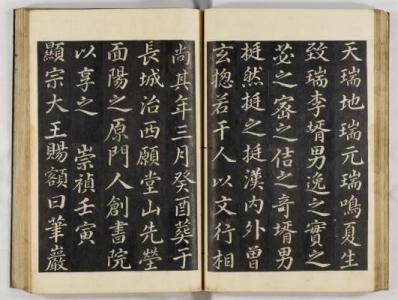 天瑞地瑞元瑞鳴夏生
致瑞李壻男逸之實之
苾之宻之佶之奇壻男
挺然挺之挺漢内外曾
玄揔若干人以文行相
尚其年三月癸酉葬于
長城治西願堂山先塋
面陽之原門人創書院
以享之 崇禎壬寅
顯宗大王賜額曰筆巖